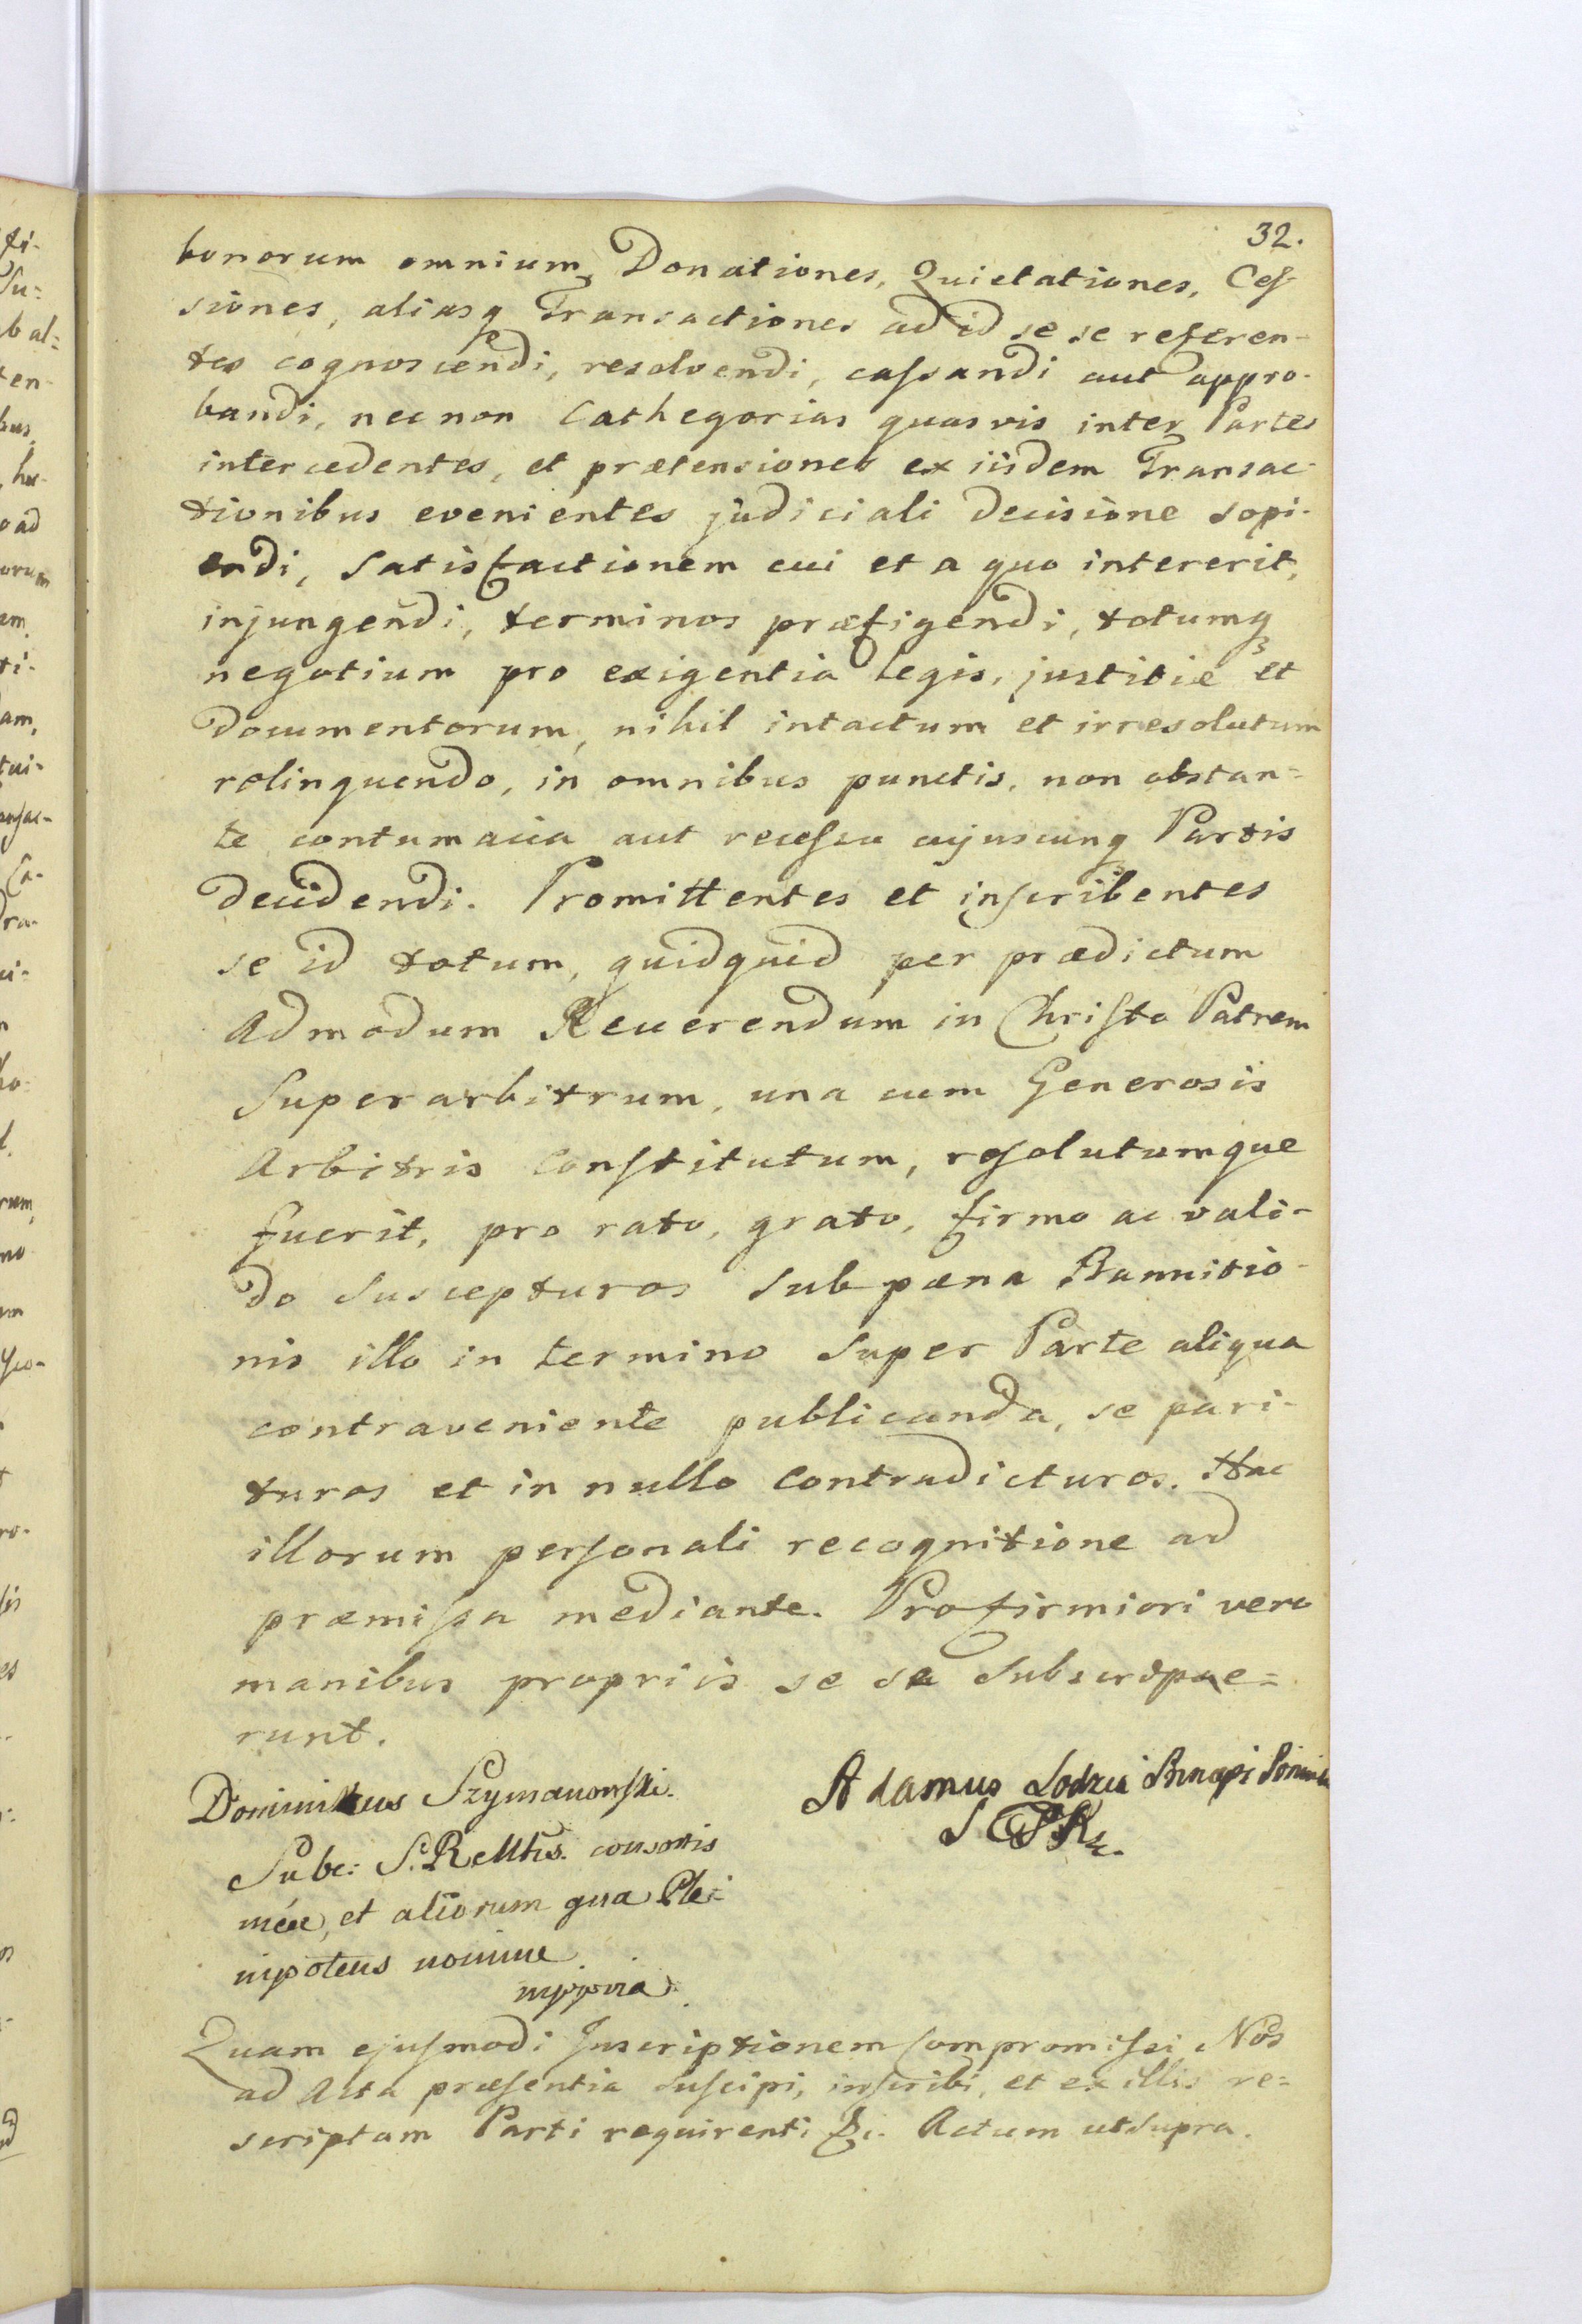 32.
bonorum omnium, Donationes, Quietationes, Ces
siones, aliasq Transactiones ad id se se referen-
tes cognoscendi, resolvendi, cassandi aut appro-
bandi, nec non Cathegorias quasvis inter Partes
intercedentes, et prætensiones ex iisdem Transac-
tionibus evenientes judiciali decisione sopi-
endi, Satisfactionem cui et a quo intererit,
injungendi, terminos præfigendi, totumq
negotium pro exigentia Legis, justitiæ et
Documentorum, nihil intactum et irresolutum
relinquendo, in omnibus punctis, non obstan=
te contumacia aut recessu cujuscunq Partis
decidendi. Promittentes et inscribentes
se id totum, quidquid per prædictum
Admodum Reverendum in Christo Patrem
Superarbitrum, una cum Generosis
Arbitris Constitutum, resolutumque
fuerit, pro rato, grato, firmo ac vali-
do suscepturos sub pœna Bannitio-
nis illo in termino super Parte aliqua
contraveniente publicanda, se pari-
turos et in nullo contradicturos. Hac
illorum personali recognitione ad
præmissa mediante. Pro firmiori vero
manibus propriis se se subscripse=
runt.
Dominikus Szymanowski. Adamus Lodzia
Subc: S. R consortis
meæ, et aliorum qua Ple:
nipotens nomine
mppria
Quam ejusmodi Inscriptionem Compromissi Nos
ad Acta præsentia suscipi, inscribi, et ex illis re=
scriptam Parti requirenti &c. Actum ut supra.